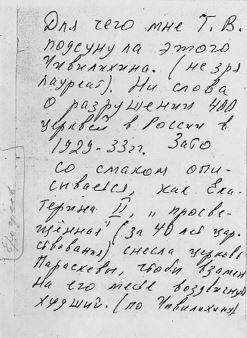 Для чего мне Т. В.
подсунула этого
Чивилихина. (не зря
лауреат). Ни слова
о разрушении 400
церквей в России в
1929-33гг. Зато
со смаком опи-
сывается, как Ека-
терина II, „просве-
щённая" (за 40 лет цар-
ствования) снесла церковь
Параскевы, чтобы взамен
на его месте воздвигнуть
худший. (по Чивилихину)